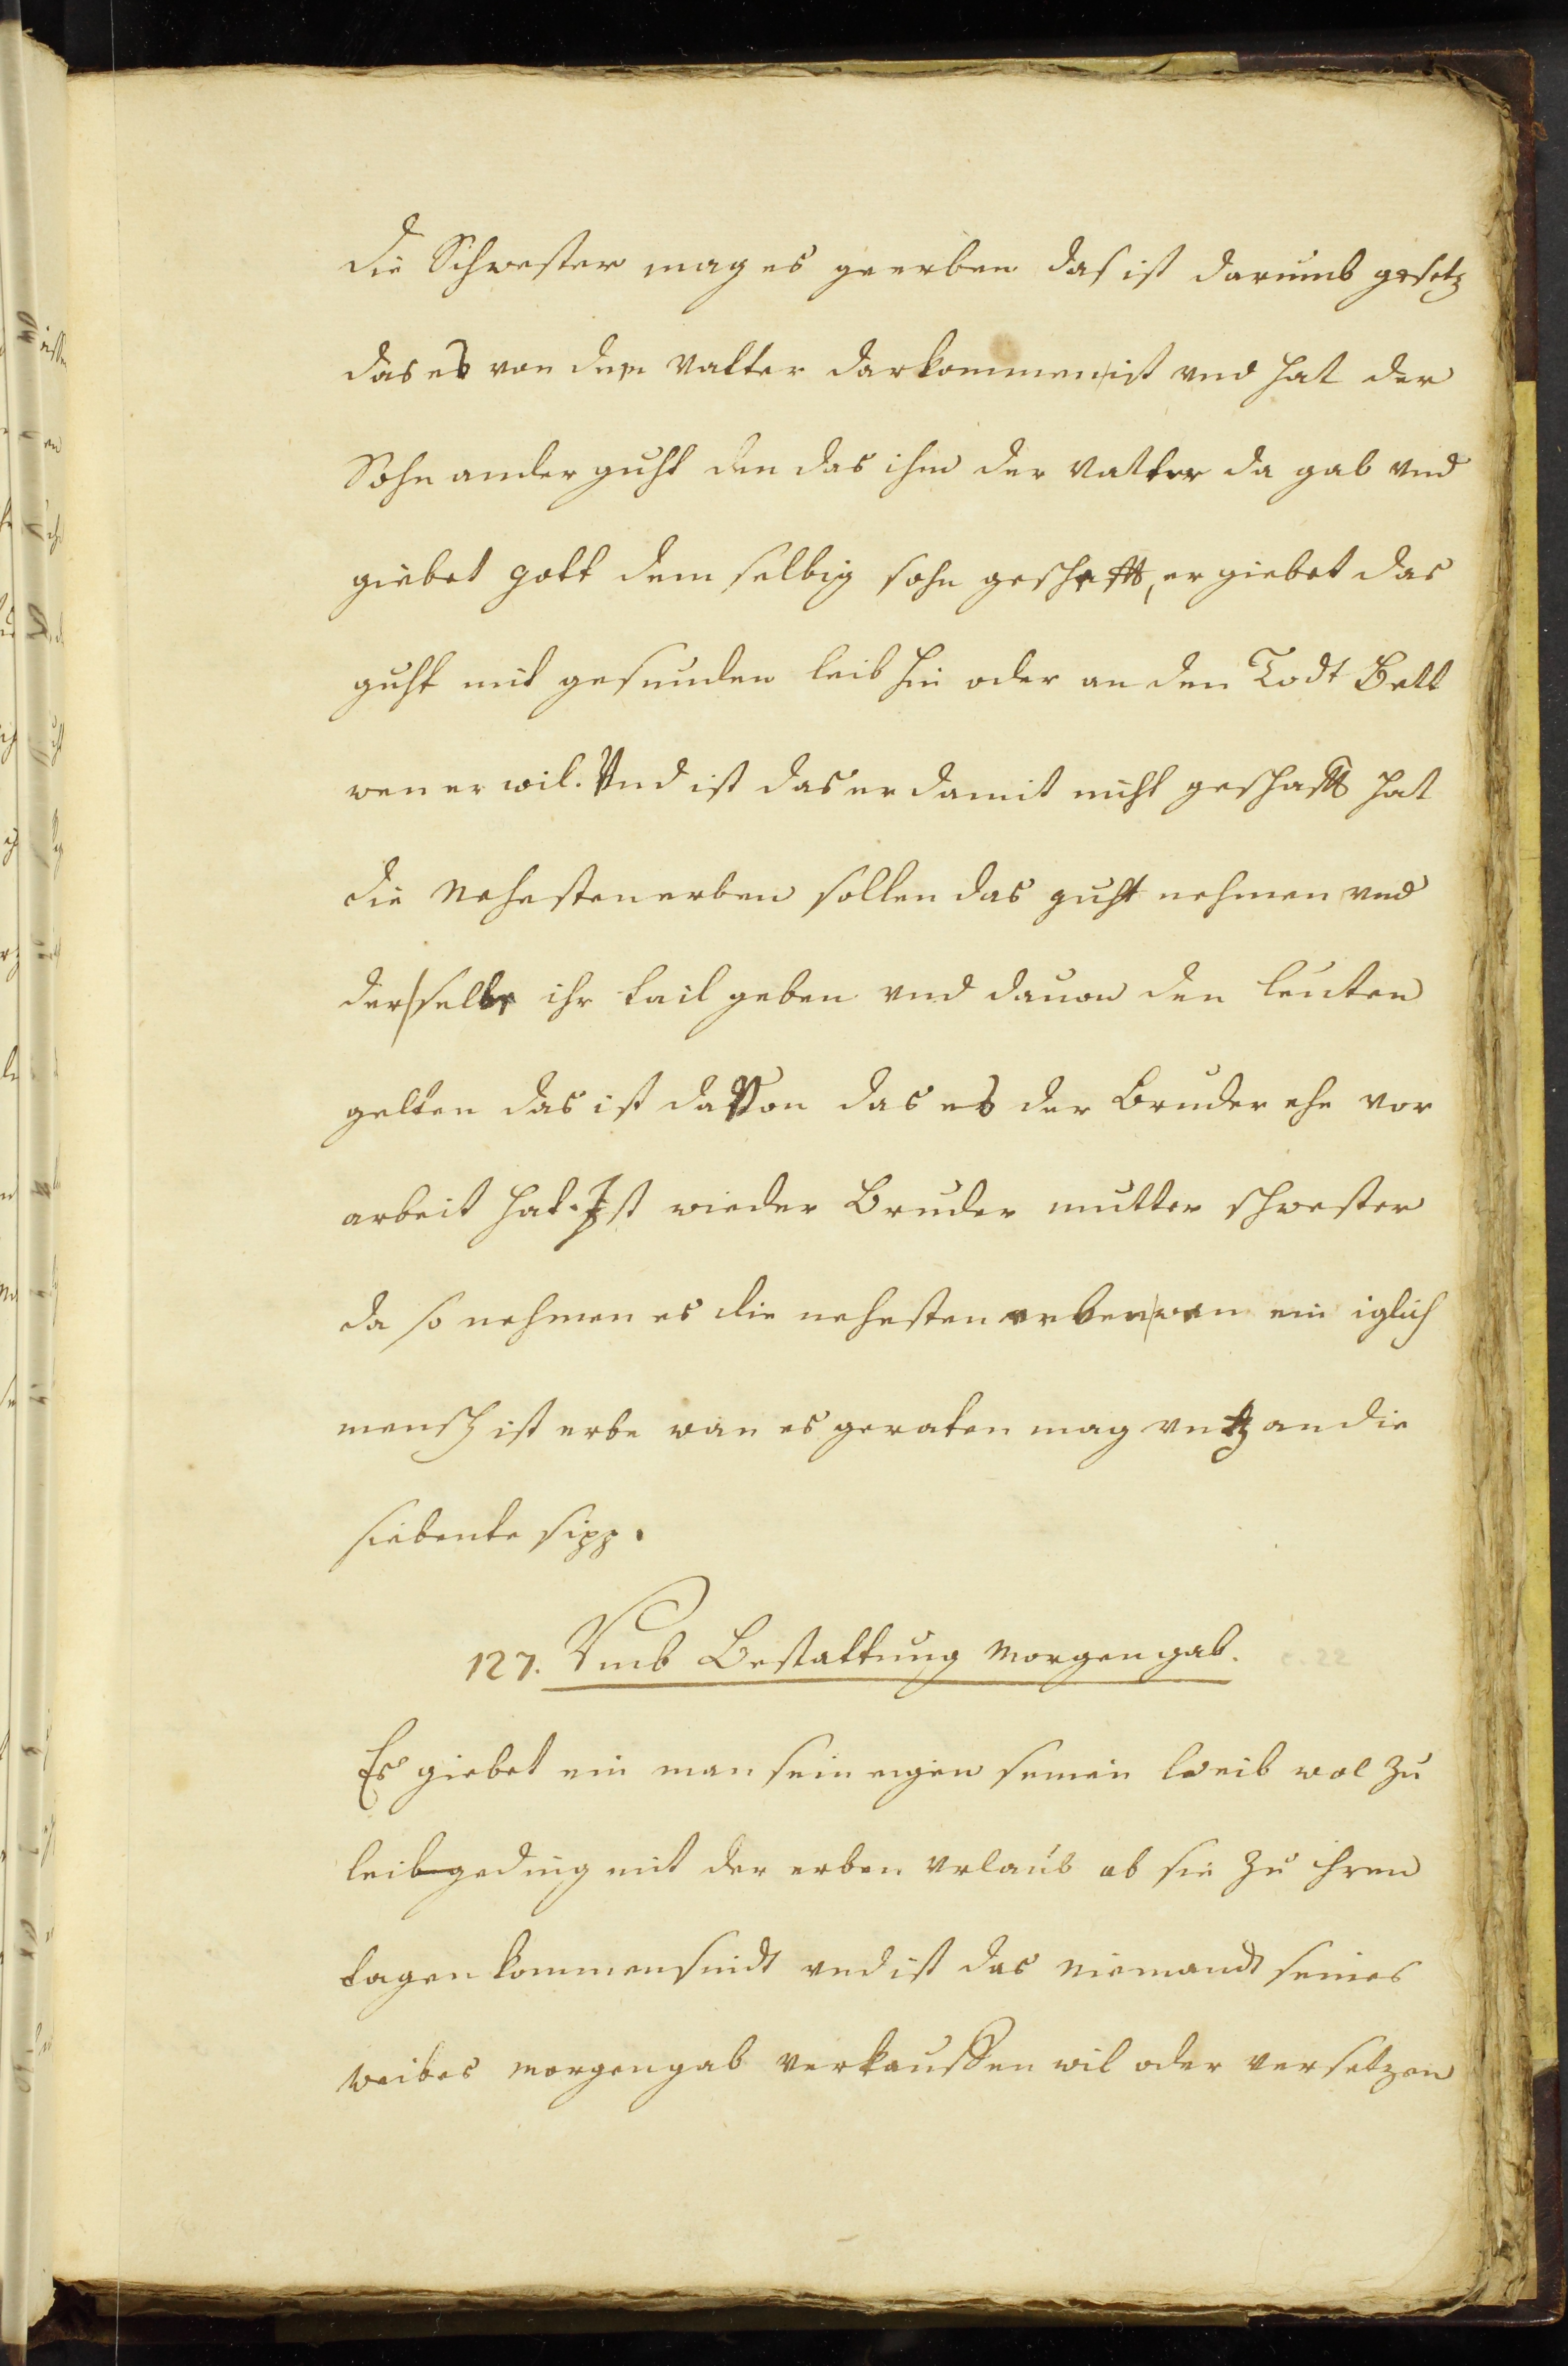 die Schwester mag es geerben das ist darumb gesetz
das es von dem Vatter darkommen ist vnd hat der
Sohn ander guht den das ihm der Vatter da gab vnd
giebet gott dem selbig sohn geschefft, er giebet das
guht mit gesunden leib hin oder an den Todt Bett
wen er wil. Vnd ist das er damit nicht geschafft hat
die Nehesten erben sollen das guht nehmen vnd
der selbe ihr tail geben vnd dauon den leuten
gelten das ist daVon das es der Bruder ehe vor
arbeit hat. Ist wieder Bruder mutter schwester
da so nehmen es die nehesten erben wen ein iglich
mensch ist erbe wan es geraten mag vntz an die
siebente sipp.
127. Vmb Bestattung Morgengab. c. 22
Es giebet ein man sein eigen seinen Weib wol zu
leibgeding mit der erben Vrlaub ob sie zu ihren
tagen kommen sindt vnd ist das Niemandt seines
Weibes morgengab Verkauffen wil oder versetzen